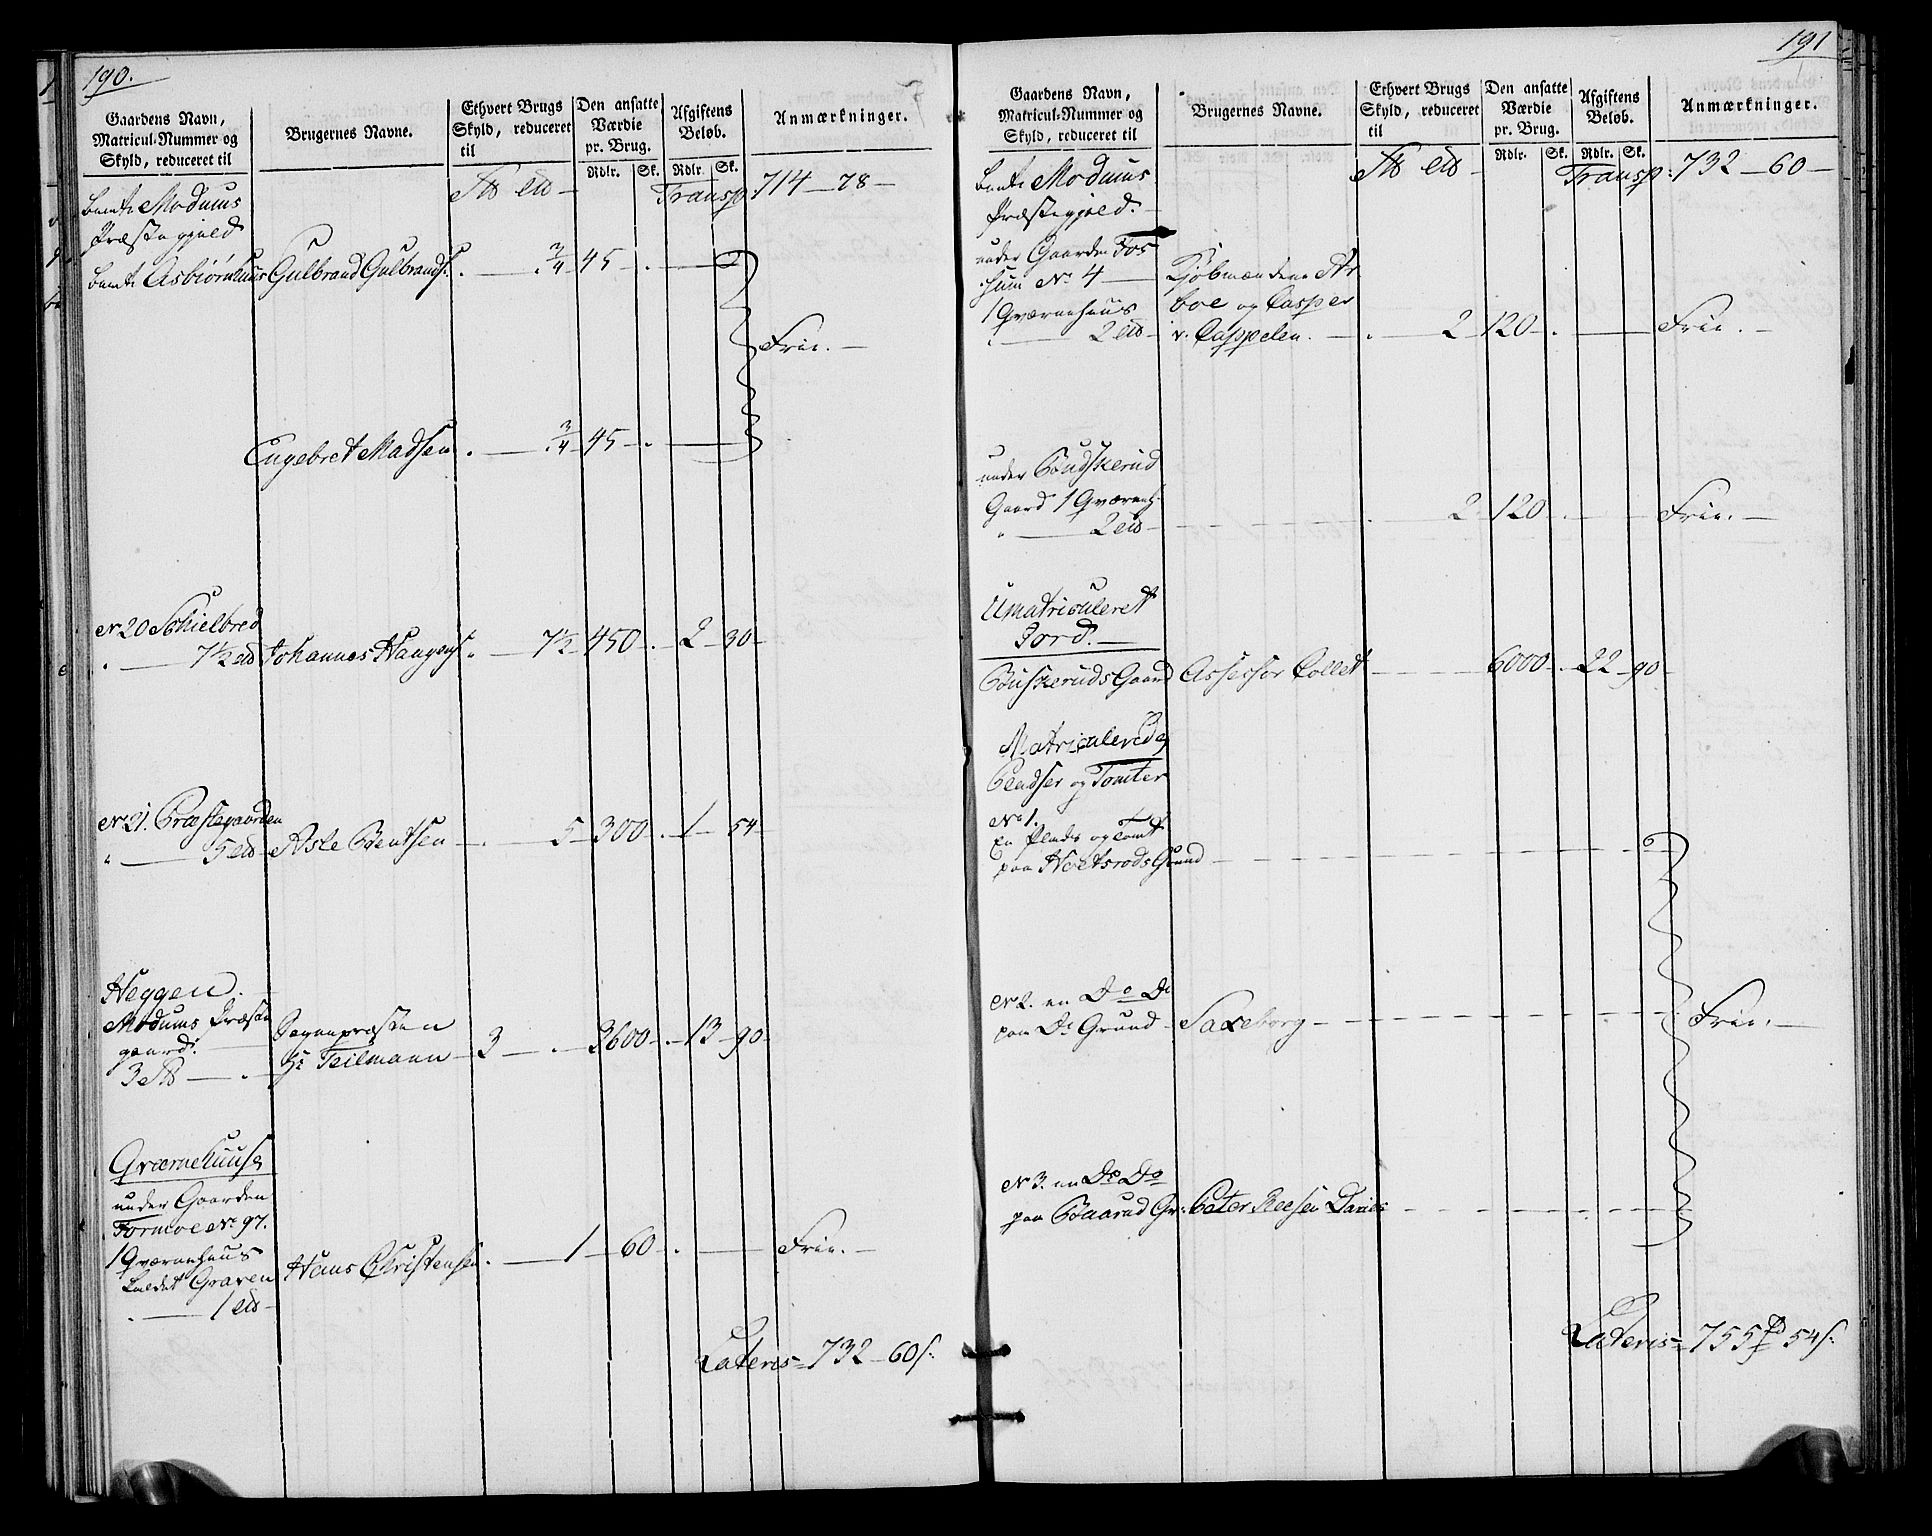 190.
Gaardens Navn,
Matricul-Nummer og
Skyld, reduceret til
Brugernes Navne.
Ethvert Brugs
Skyld, reduceret
til
Den ansatte
Værdie
pr. Brug.
Rdlr. Sk.
Afgiftens
Beløb.
Rdlr. Sk.
Anmærkninger.
Transp 714 — 78 —
Modums
Præstegjeld
Asbiørnhuus Gulbrand Gulbrands. . — . 3/4 45 — . —
Frie. —
Engebret Madsen . — . 3/4 45 — . —
No 20 Schielbred
" — 7½ Johannes Haugens " 7½ 450 . 2 — 30 —
No 21. Præstegaarden
" — 5 Asle Bentsen — . 5 — 300 . 1 — 54 —
Heggen.
Modums Præste
gaard.
3 — .
Sognepræsten
Hr Teilmann — 3 — . — 3600 . 13 — 90 —
Qværnehuuse
under Gaarden
Formoe No 97.
1 Qværnehuus
kaldet Graven
. — 1
Hans Christensen . — 1 — 60 — . — Frie. —
Lateris = 732 — 60 s.
191
Gaardens Navn,
Matricul-Nummer og
Skyld, reduceret til
Brugernes Navne.
Ethvert Brugs
Skyld, reduceret
til
Den ansatte
Værdie
pr. Brug.
Rdlr. Sk.
Afgiftens
Beløb.
Rdlr. Sk.
Anmærkninger.
Transp. 732 — 60 —
Modums
Præstegjeld. —
under Gaarden Fos
sum No 4 —
1 Qværnehuus
" — 2
Kjøbmændene Ar
boe og Casper
v. Cappelen. — . 2 120 — . — Frie. —
under Budskerud
Gaard 1 Qværneh.
" — 2 — . 2 120 . — Frie. —
Umatriculeret
Jord. —
Buskeruds Gaard Assessor Collet — 6000 . 22 — 90 —
Matriculerede
Pladser og Tomter
No 1.
En Plads og Tomt
paa Hoetsrods Grund —
No 2. en Do Do
paa Do Grund — Saxeborg — Frie. —
No 3. en Do Do
paa Baarud Gr. Peter Reesen Daries —
Lateris = 755 54 s.